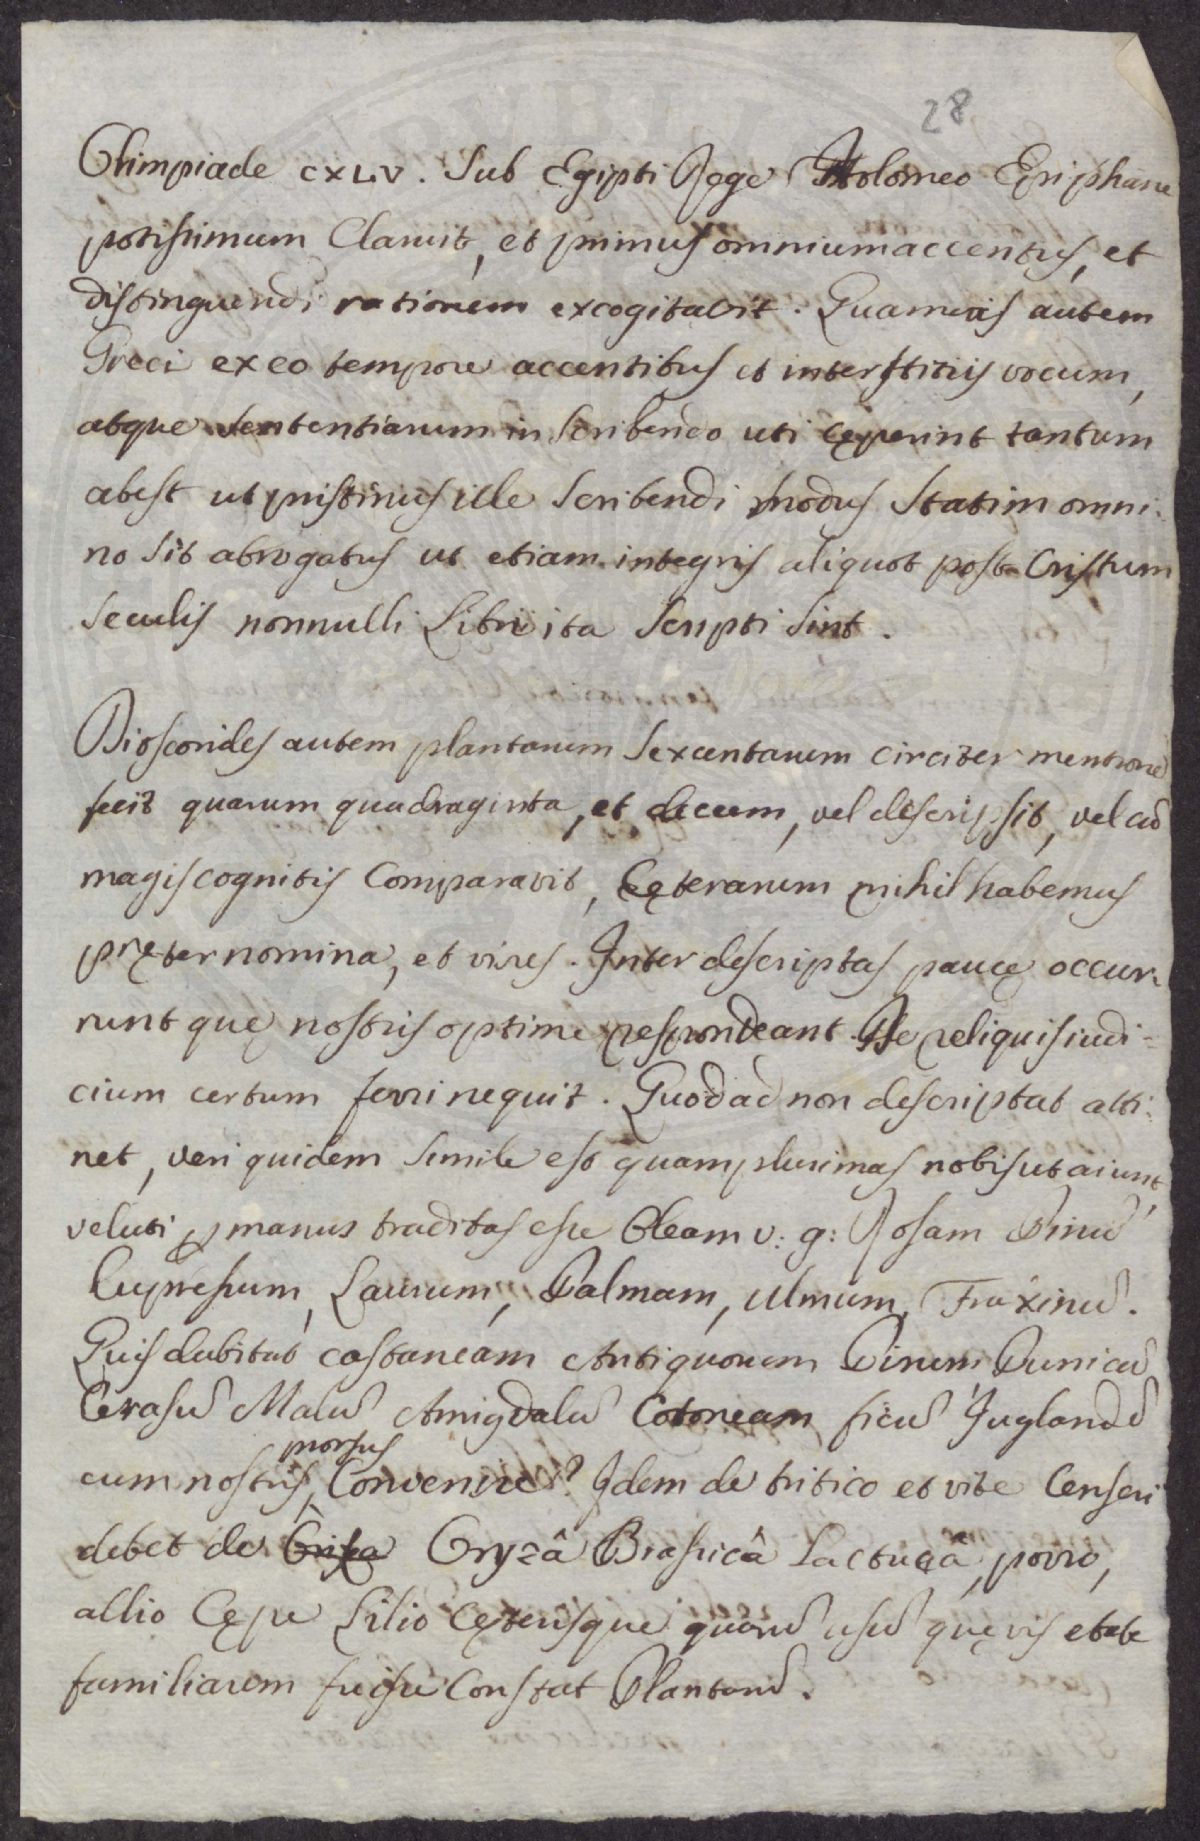 28
Olimpiade CXLV. Sub Egipti Rege Ptolomeo Epiphane
potissimum Claruit, et primus omnium accentus, et
distinguendi rationem excogitavit. Quamvis autem
Greci ex eo tempore accentibus et interstitiis vocum,
atque sententiarum in scribendo uti cęperint tantum
abest ut pristinus ille scribendi modus statim omni-
no sit abrogatus ut etiam integris aliquot post Cristum
seculis nonnulli Libri ita scripti sint.
Dioscorides autem plantarum sexcentarum circiter mentionē
fecit quarum quadraginta, et decem, vel descripsit, vel cū
magis cognitis comparavit, Cęterarum nihil habemus
pręter nomina, et vires. Inter descriptas paucę occur-
runt quę nostris optime respondeant. De reliquis iudi=
cium certum ferri nequit. Quod ad non descriptas atti-
net, veri quidem simile est quamplurimas nobis ut aiunt,
veluti p manus traditas esse Oleam v: g: Rosam Pinū
Cupressum, Laurum, Palmam, Ulmum, Fraxinū.
Quis dubitat castaneam Antiquorum Pirum, Punicū
Cerasū Malū Amigdalū Cotoneam ficū Juglandē
cum nostris prorsus Convenire? Idem de tritico et vite Censeri
debet de Oryzâ Brassicâ Lactucâ, porro,
allio Cępe Lilio Cęterisque quorū usū quęvis etate
familiarem fuisse Constat Plantarū.